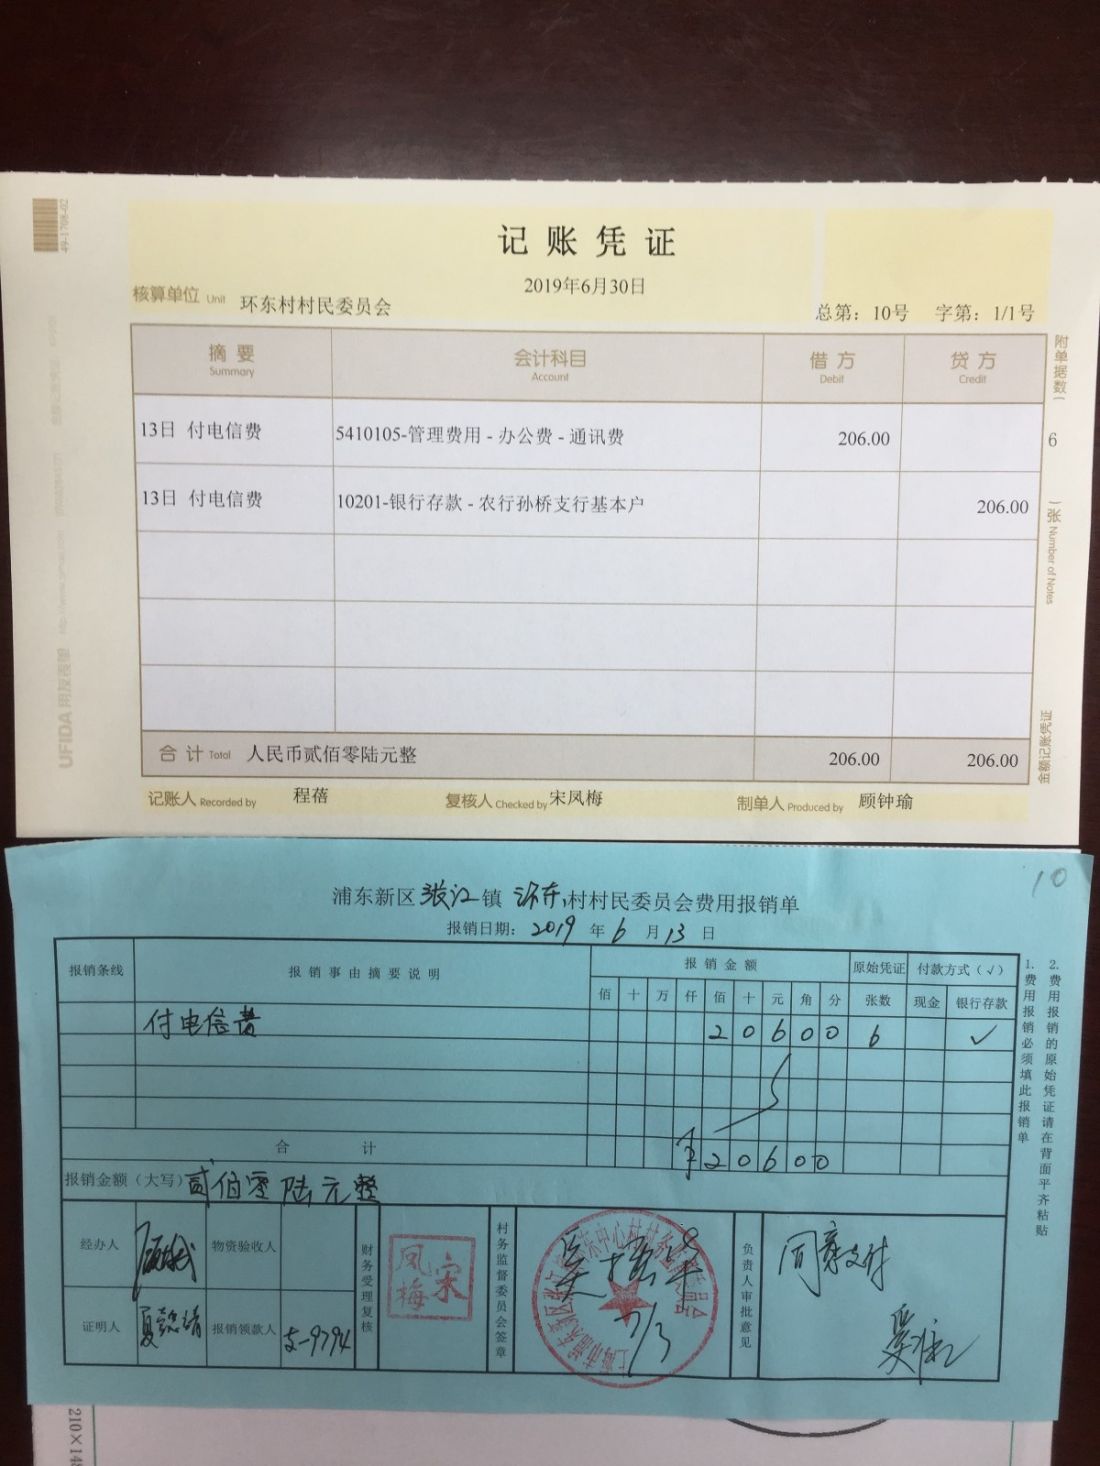 49-1708-02
记账凭证
2019年6月30日
核算单位 Unit 环东村村民委员会
总第：10号 字第：1/1号
摘要 会计科目 借方 贷方
Summary Account Debit Credit
附单据数（ 6 张） Number of Notes
13日 付电信费 5410105-管理费用 - 办公费 - 通讯费 206.00
13日 付电信费 10201-银行存款 - 农行孙桥支行基本户 206.00
合计 Total 人民币贰佰零陆元整 206.00 206.00
金额记账凭证
UFIDA 用友表单
记账人 Recorded by 程蓓 复核人 Checked by 宋凤梅 制单人 Produced by 顾钟瑜
10
浦东新区张江镇环东村村民委员会费用报销单
报销日期：2019年6月13日
报销条线 报销事由摘要说明 报销金额 原始凭证 付款方式（√）
佰 十 万 仟 佰 十 元 角 分 张数 现金 银行存款
付电信费 2 0 6 0 0 6 ✓
合计 ¥ 2 0 6 0 0
报销金额（大写）贰佰零陆元整
1.费用报销必须填此报销单
2.费用报销的原始凭证请在背面平齐粘贴
经办人 物资验收人 财务受理复核 宋凤梅 村务监督委员会签章 7/3 负责人审批意见 同意支付
证明人 报销领款人 支-9794
210×148